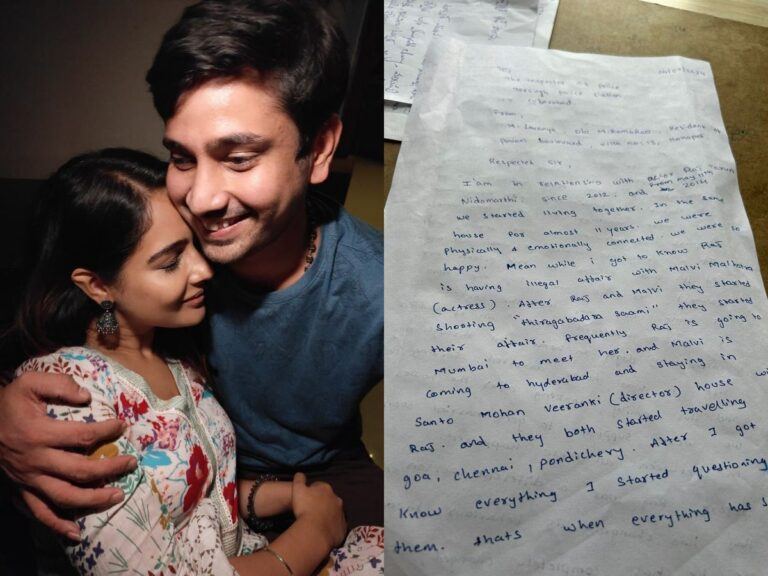 The inspector of police
through police station
Cyberabad
From,
M. Lavanya D/o M. Rambabu. Resident of
Respected sir,
I am in relationship with actor Raj Tarun
Nidomarthi since 2012. and from may 11th 2014
we started living together. In the same
house for almost 11 years. we were
physically & emotionally connected. we were so
happy. Mean while i got to know Raj
is having illegal affair with Malvi Malhotra
(actress). After Raj and Malvi they started
shooting "thiragabadara saami" they started
their affair. Frequently Raj is going to
Mumbai to meet her. and Malvi is
coming to hyderabad and staying in
Santo Mohan Veeranki (director) house
Raj. and they both started travelling
goa, chennai, pondichery. After I got
know everything I started questioning
them. thats when everything has